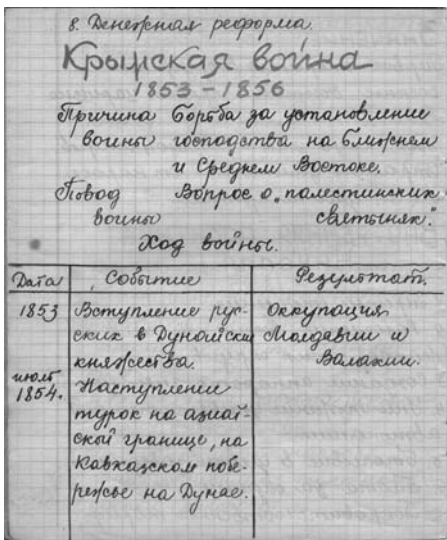 8. Денежная реформа.
Крымская война
1853-1856
Причина Борьба за установление
войны господства на Ближнем
и Среднем Востоке.
Повод Вопрос о „палестинских
войны святынях".
Ход войны.
Дата Событие Результат.
1853 Вступление рус- Оккупация
ских в Дунайские Молдавии и
княжества. Валахии.
июль
1854. Наступление
турок на азиат-
ской границе, на
Кавказском побе-
режье на Дунае.